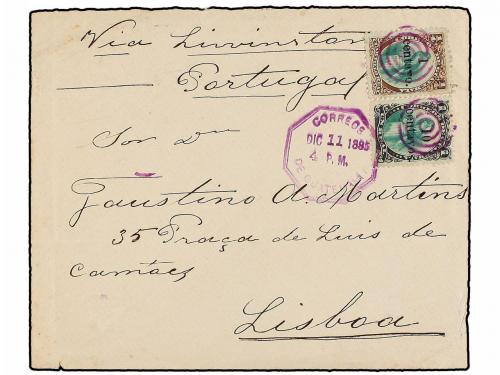 Via Livinston
Portugal
1
centavo
10
centavos
CORREOS
DIC 11 1895
4 P. M.
DE GUATEMALA
Sor Dn
Faustino A. Martins
35 Praça de Luis de
Camões
Lisboa